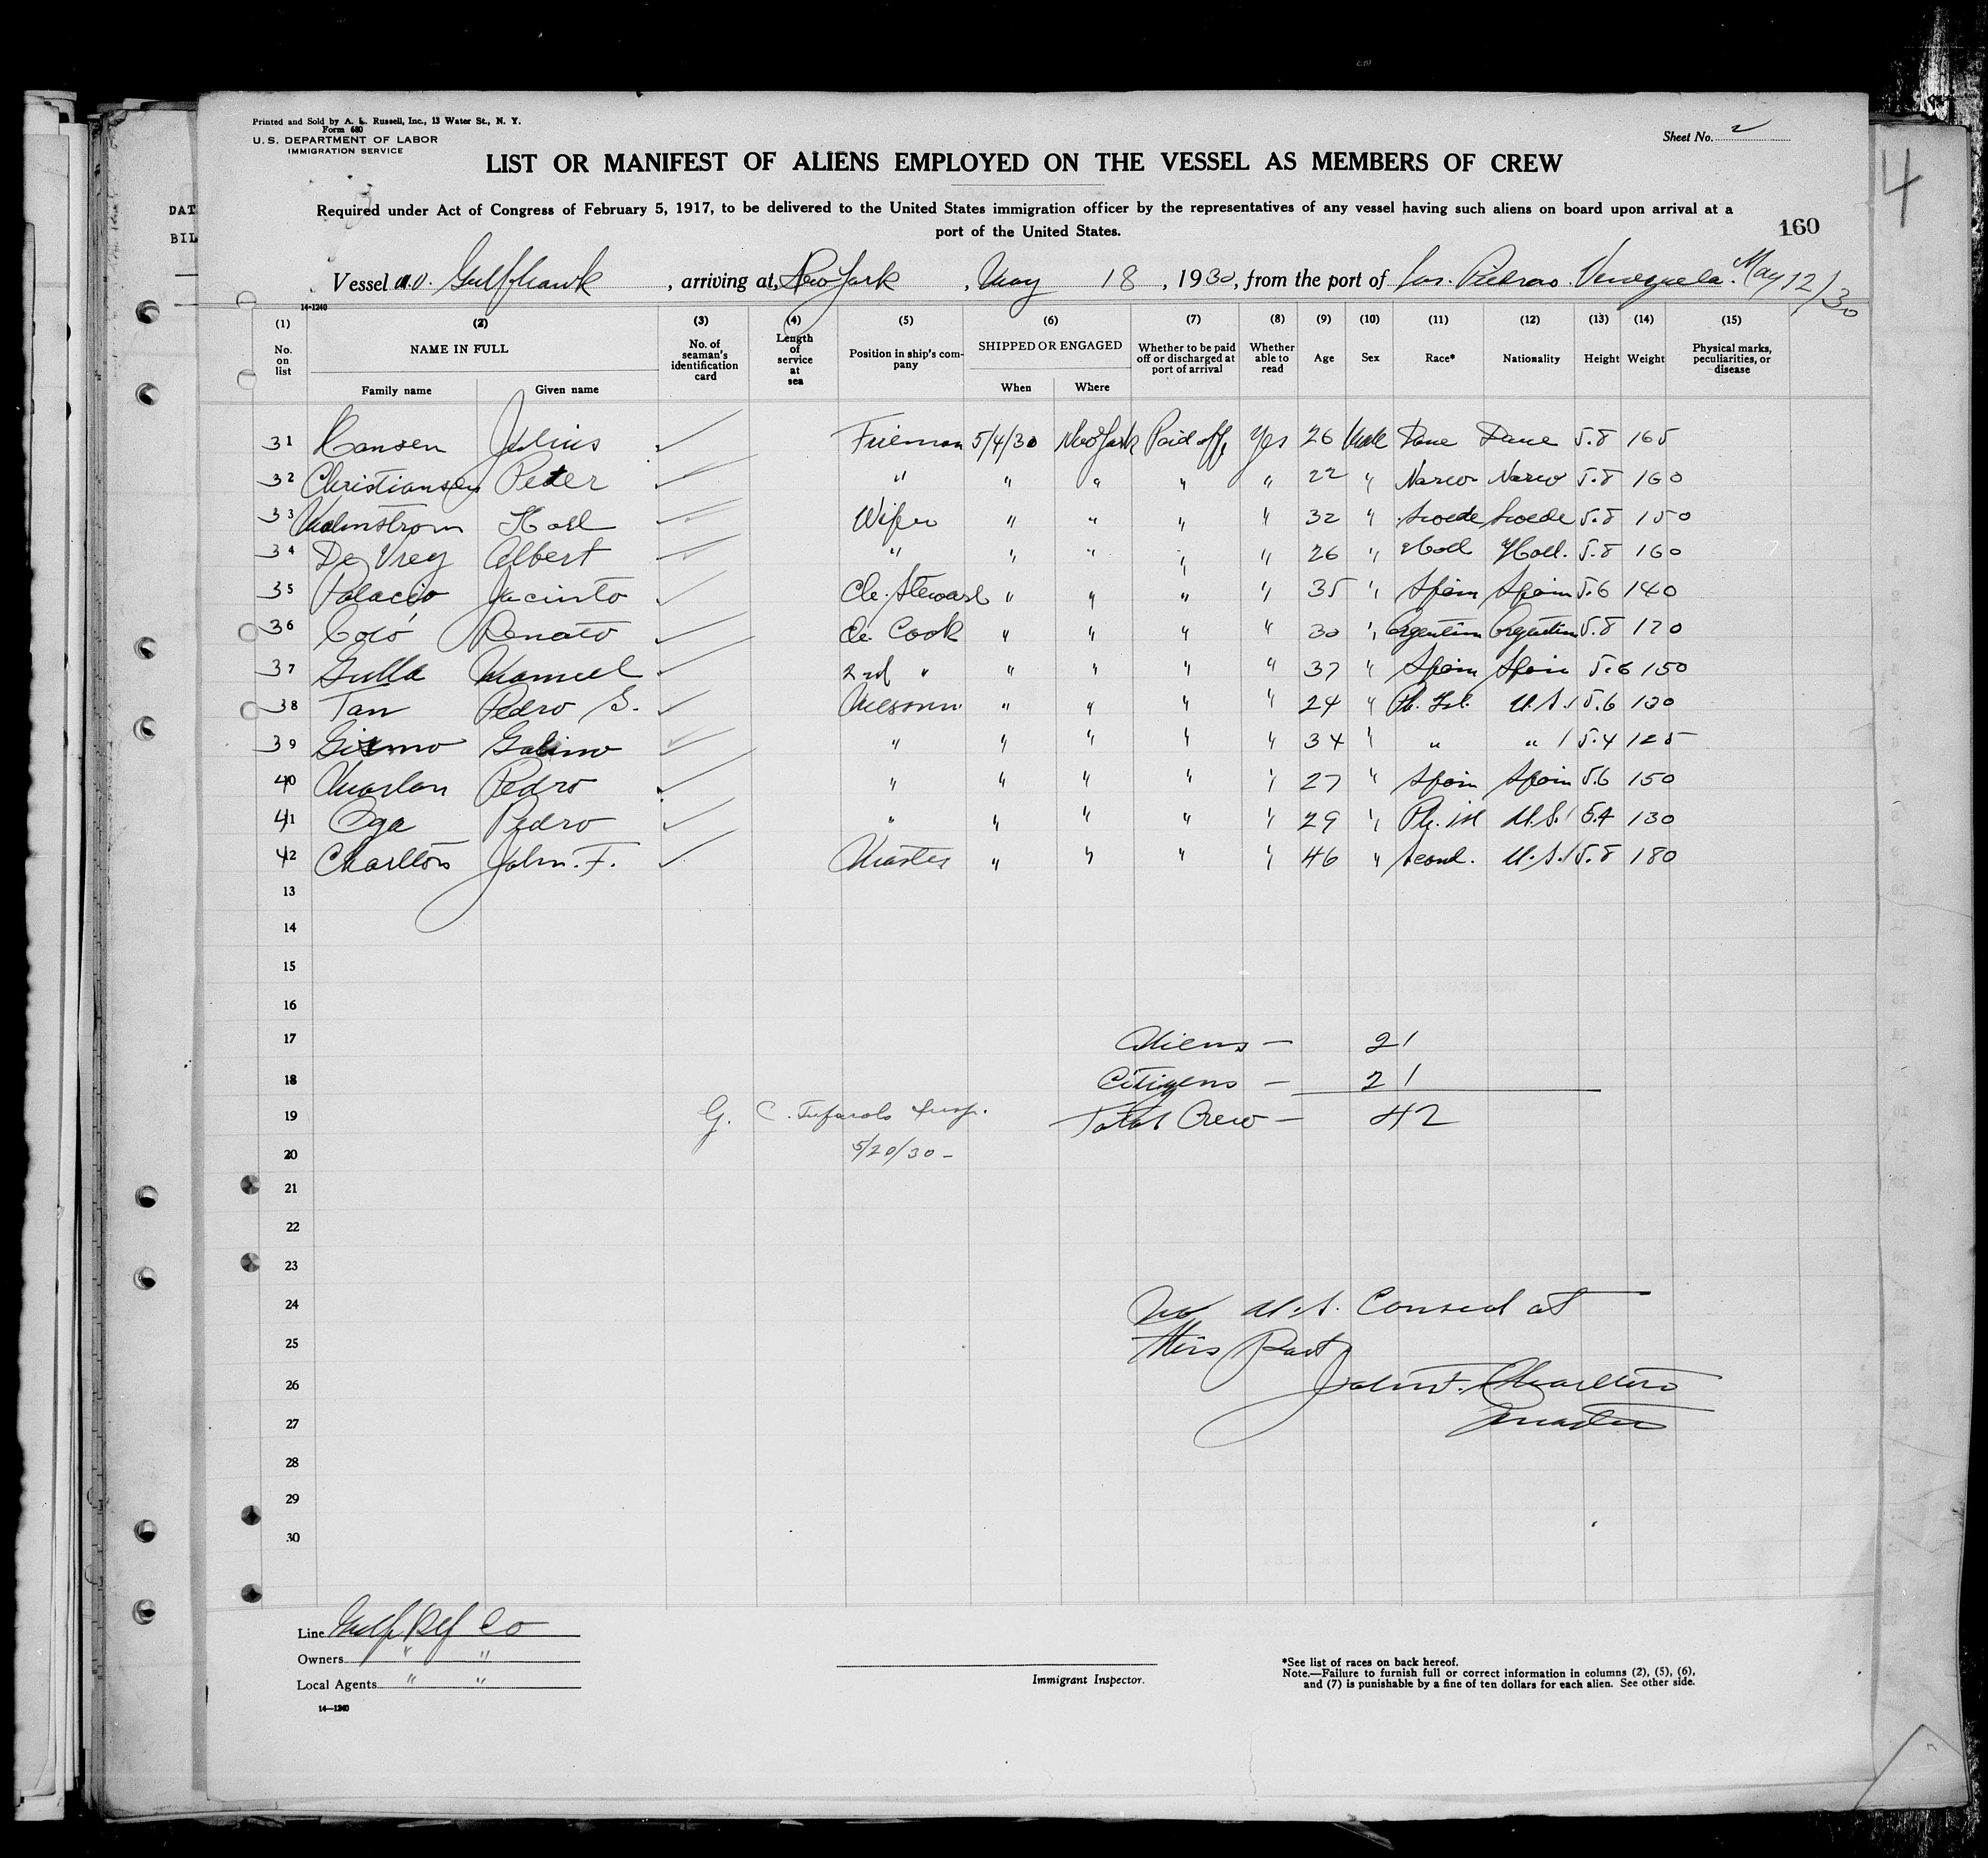 Printed and Sold by A. L. Russell, Inc., 13 Water St., N. Y.
Form 680
U. S. DEPARTMENT OF LABOR
IMMIGRATION SERVICE
Sheet No. 2
4
LIST OR MANIFEST OF ALIENS EMPLOYED ON THE VESSEL AS MEMBERS OF CREW
Required under Act of Congress of February 5, 1917, to be delivered to the United States immigration officer by the representatives of any vessel having such aliens on board upon arrival at a
port of the United States.
160
DAT
BIL
Vessel Gulfhawk, arriving at New York, May 18, 1930, from the port of Las Piedras Venezuela. May 12/30
14-1240
(1) (2) (3) (4) (5) (6) (7) (8) (9) (10) (11) (12) (13) (14) (15)
No. on list NAME IN FULL Family name Given name No. of seaman's identification card Length of service at sea Position in ship's company SHIPPED OR ENGAGED When Where Whether to be paid off or discharged at port of arrival Whether able to read Age Sex Race* Nationality Height Weight Physical marks, peculiarities, or disease
31 Hansen Julius ✓ Fireman 5/4/30 New York Paid off Yes 26 Male Dane Dane 5.8 165
32 Christiansen Peter ✓ " " " " " 22 " Norw Norw 5.8 160
33 Malmstrom Karl ✓ Wiper " " " " 32 " Swede Swede 5.8 150
34 De Vrey Albert ✓ " " " " " 26 " Holl Holl. 5.8 160
35 Palacio Jacinto ✓ Ch. Steward " " " " 35 " Spain Spain 5.6 140
36 Renato ✓ Ch. Cook " " " " 30 " Argentina Argentina 5.8 170
37 Gulla Manuel ✓ 2nd " " " " " 37 " Spain Spain 5.6 150
38 Tan Pedro S. ✓ Messman " " " " 24 " Ph. Isl. U.S. 5.6 130
39 Gismo Galino ✓ " " " " " 34 " " " 5.4 125
40 Marlan Pedro ✓ " " " " " 27 " Spain Spain 5.6 150
41 Oga Pedro ✓ " " " " " 29 " Ph. isl U.S. 5.4 130
42 Charlton John. F. ✓ Master " " " " 46 " Scand. U.S. 5.8 180
13
14
15
16
17 Aliens — 21
18 Citizens — 21
19 G. C. Insp. Total Crew — 42
20 5/20/30 —
21
22
23
24 No U.S. Consul at
25 this Port
26 John F. Charlton
27 Master
28
29
30
Line Gulf Ref Co
Owners " "
Local Agents " "
14—1240
Immigrant Inspector.
*See list of races on back hereof.
Note.—Failure to furnish full or correct information in columns (2), (5), (6),
and (7) is punishable by a fine of ten dollars for each alien. See other side.